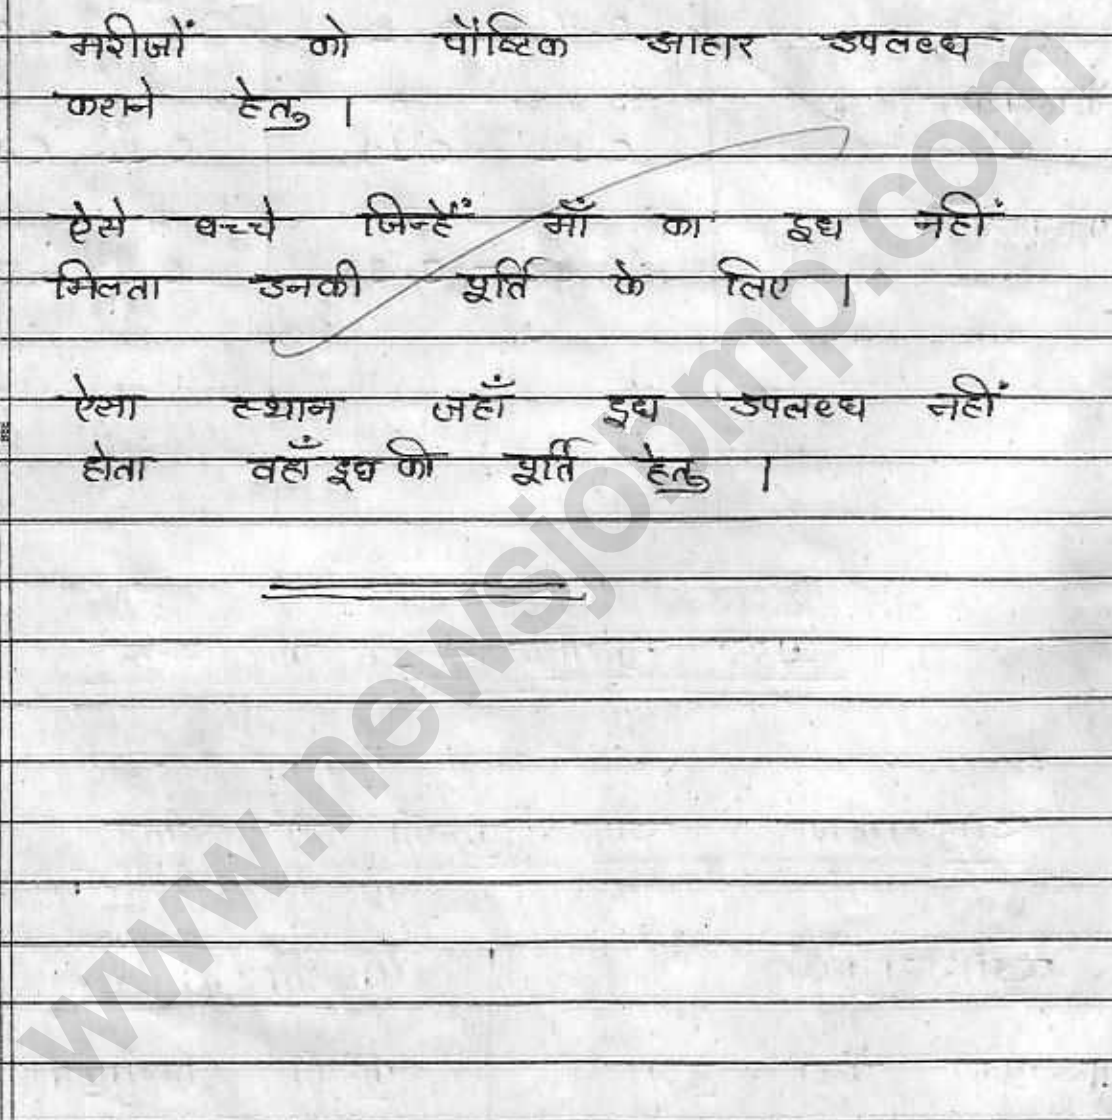 मरीजों को पौष्टिक आहार उपलब्ध
कराने हेतु ।
ऐसे बच्चे जिन्हें माँ का दूध नहीं
मिलता उनकी पूर्ति के लिए ।
ऐसा स्थान जहाँ दूध उपलब्ध नहीं
होता वहाँ दूध की पूर्ति हेतु ।
www.newsjobmp.com